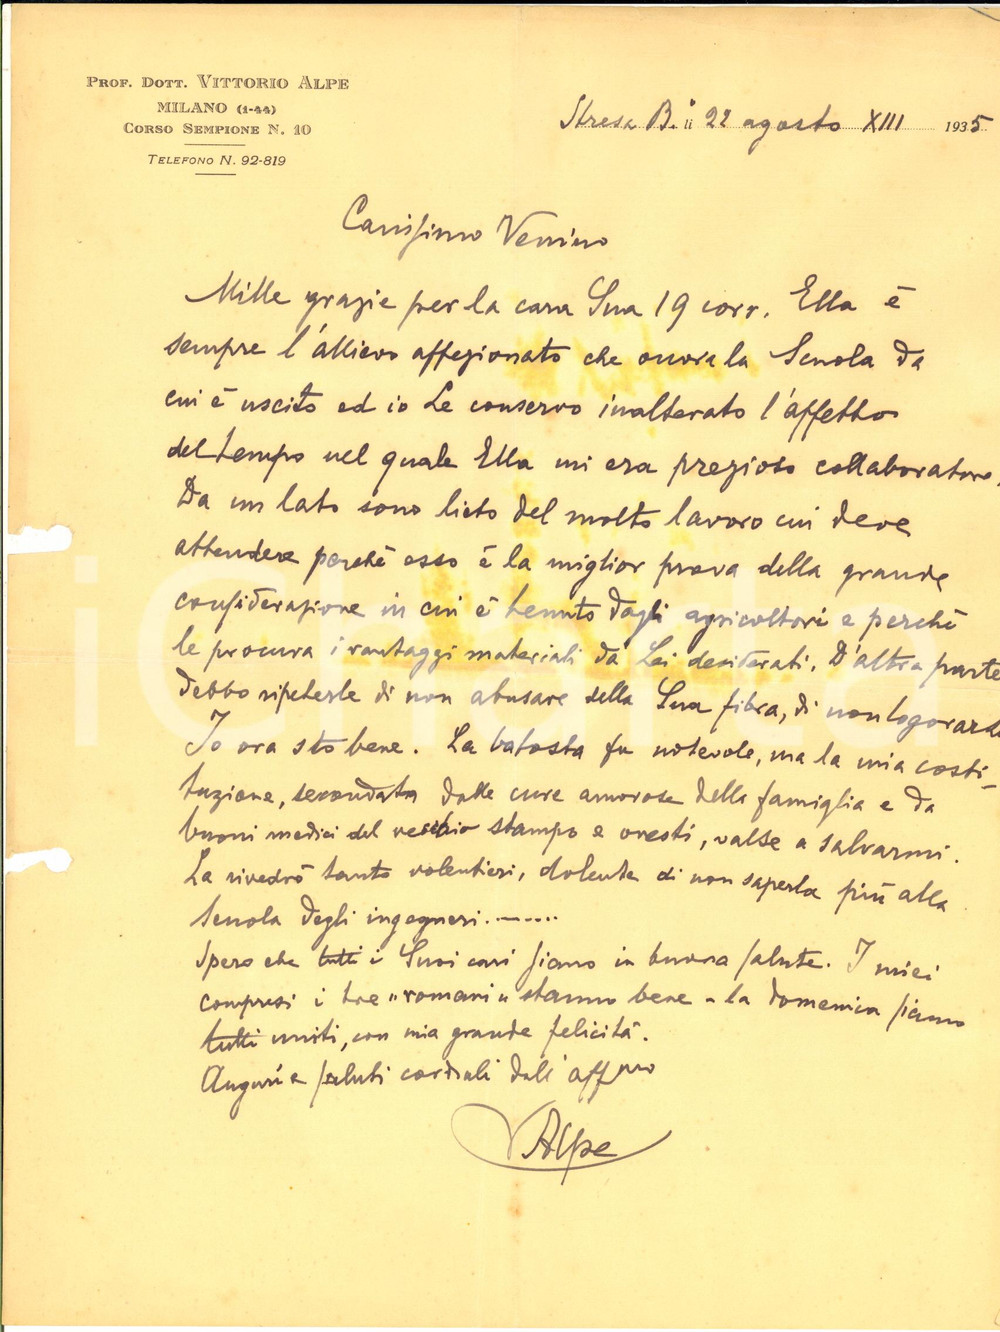 PROF. DOTT. VITTORIO ALPE
MILANO (1-44)
CORSO SEMPIONE N. 10
TELEFONO N. 92-819
Stresa B.° li 22 agosto XIII 1935
Carissimo Vezzino
Mille grazie per la cara Sua 19 corr. Ella è
sempre l'allievo affezionato che onora la Scuola da
cui è uscito ed io Le conservo inalterato l'affetto
del tempo nel quale Ella mi era prezioso collaboratore.
Da un lato sono lieto del molto lavoro cui deve
attendere perchè esso è la miglior prova della grande
considerazione in cui è tenuto dagli agricoltori e perchè
le procura i vantaggi materiali da Lei desiderati. D'altra parte
debbo ripeterle di non abusare della Sua fibra, di non logorarsi
Io ora sto bene. La batosta fu notevole, ma la mia costi-
tuzione, secondata dalle cure amorose della famiglia e da
buoni medici del vecchio stampo e onesti, valse a salvarmi.
La rivedrò tanto volentieri, dolente di non saperla più alla
Scuola degli ingegneri.
Spero che tutti i Suoi cari siano in buona salute. I miei
compresi i tre "romani" stanno bene - la domenica siamo
tutti uniti, con mia grande felicità.
Auguri e saluti cordiali dall'aff.mo
V Alpe
iCharta